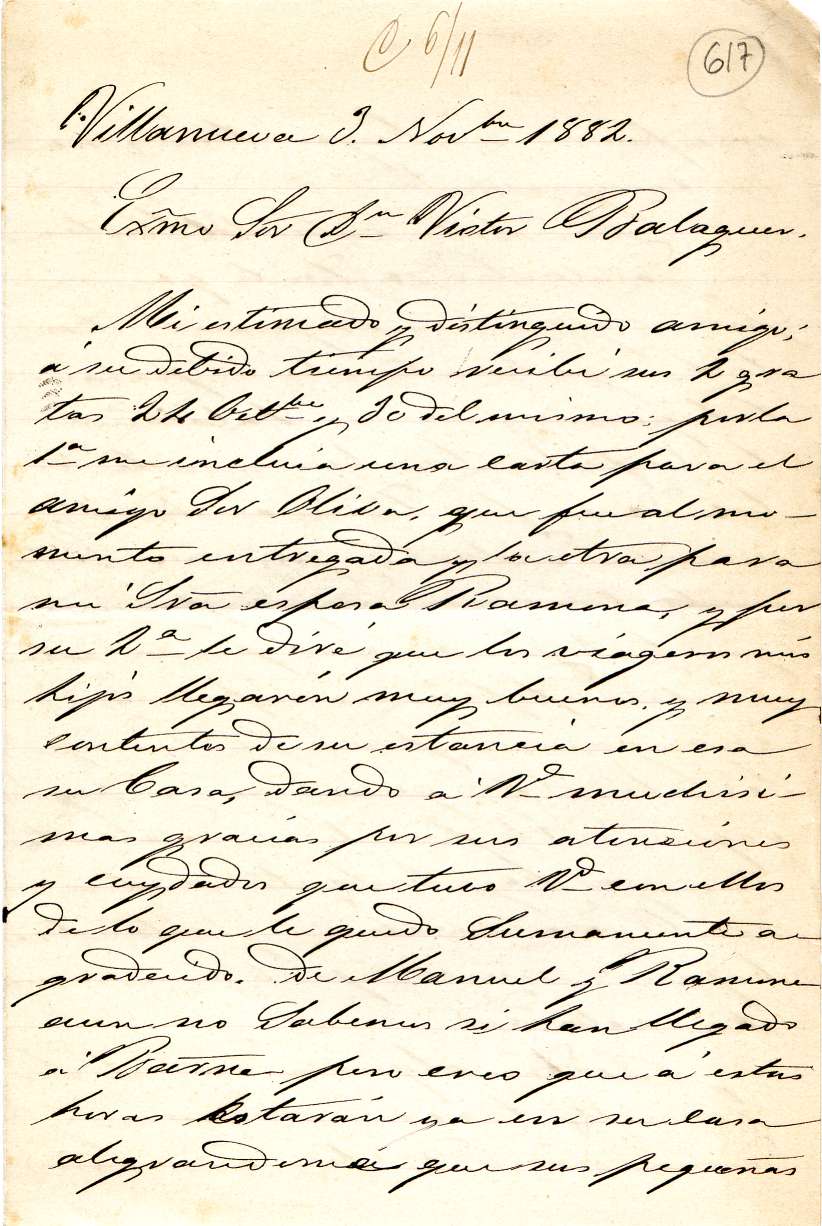 C 6/11
617
Villanueva 3. Novbre 1882.
Exmo Sor Dn Victor Balaguer.
Mi estimado y distinguido amigo;
á su debido tiempo recibí sus 2 gra
tas 24 Octbre y 30 del mismo; por la
1a me incluia una carta para el
amigo Sor Oliva, que fue al mo-
mento entregada y la otra para
mi Sra esposa Ramona, y por
su 2a le diré que los viageros mis
hijos llegarón muy buenos, y muy
contentos de su estancia en esa
su Casa, dando á Vd muchisi-
mas gracias por sus atenciónes
y cuydados que tuvo Vd con ellos
de lo que le quedo Sumamente a-
gradecido. de Manuel y Ramona
aun no Sabemos si han llegado
á Barna pero creo que á estas
horas Estarán ya en su casa
alegrandome que sus pequeñas